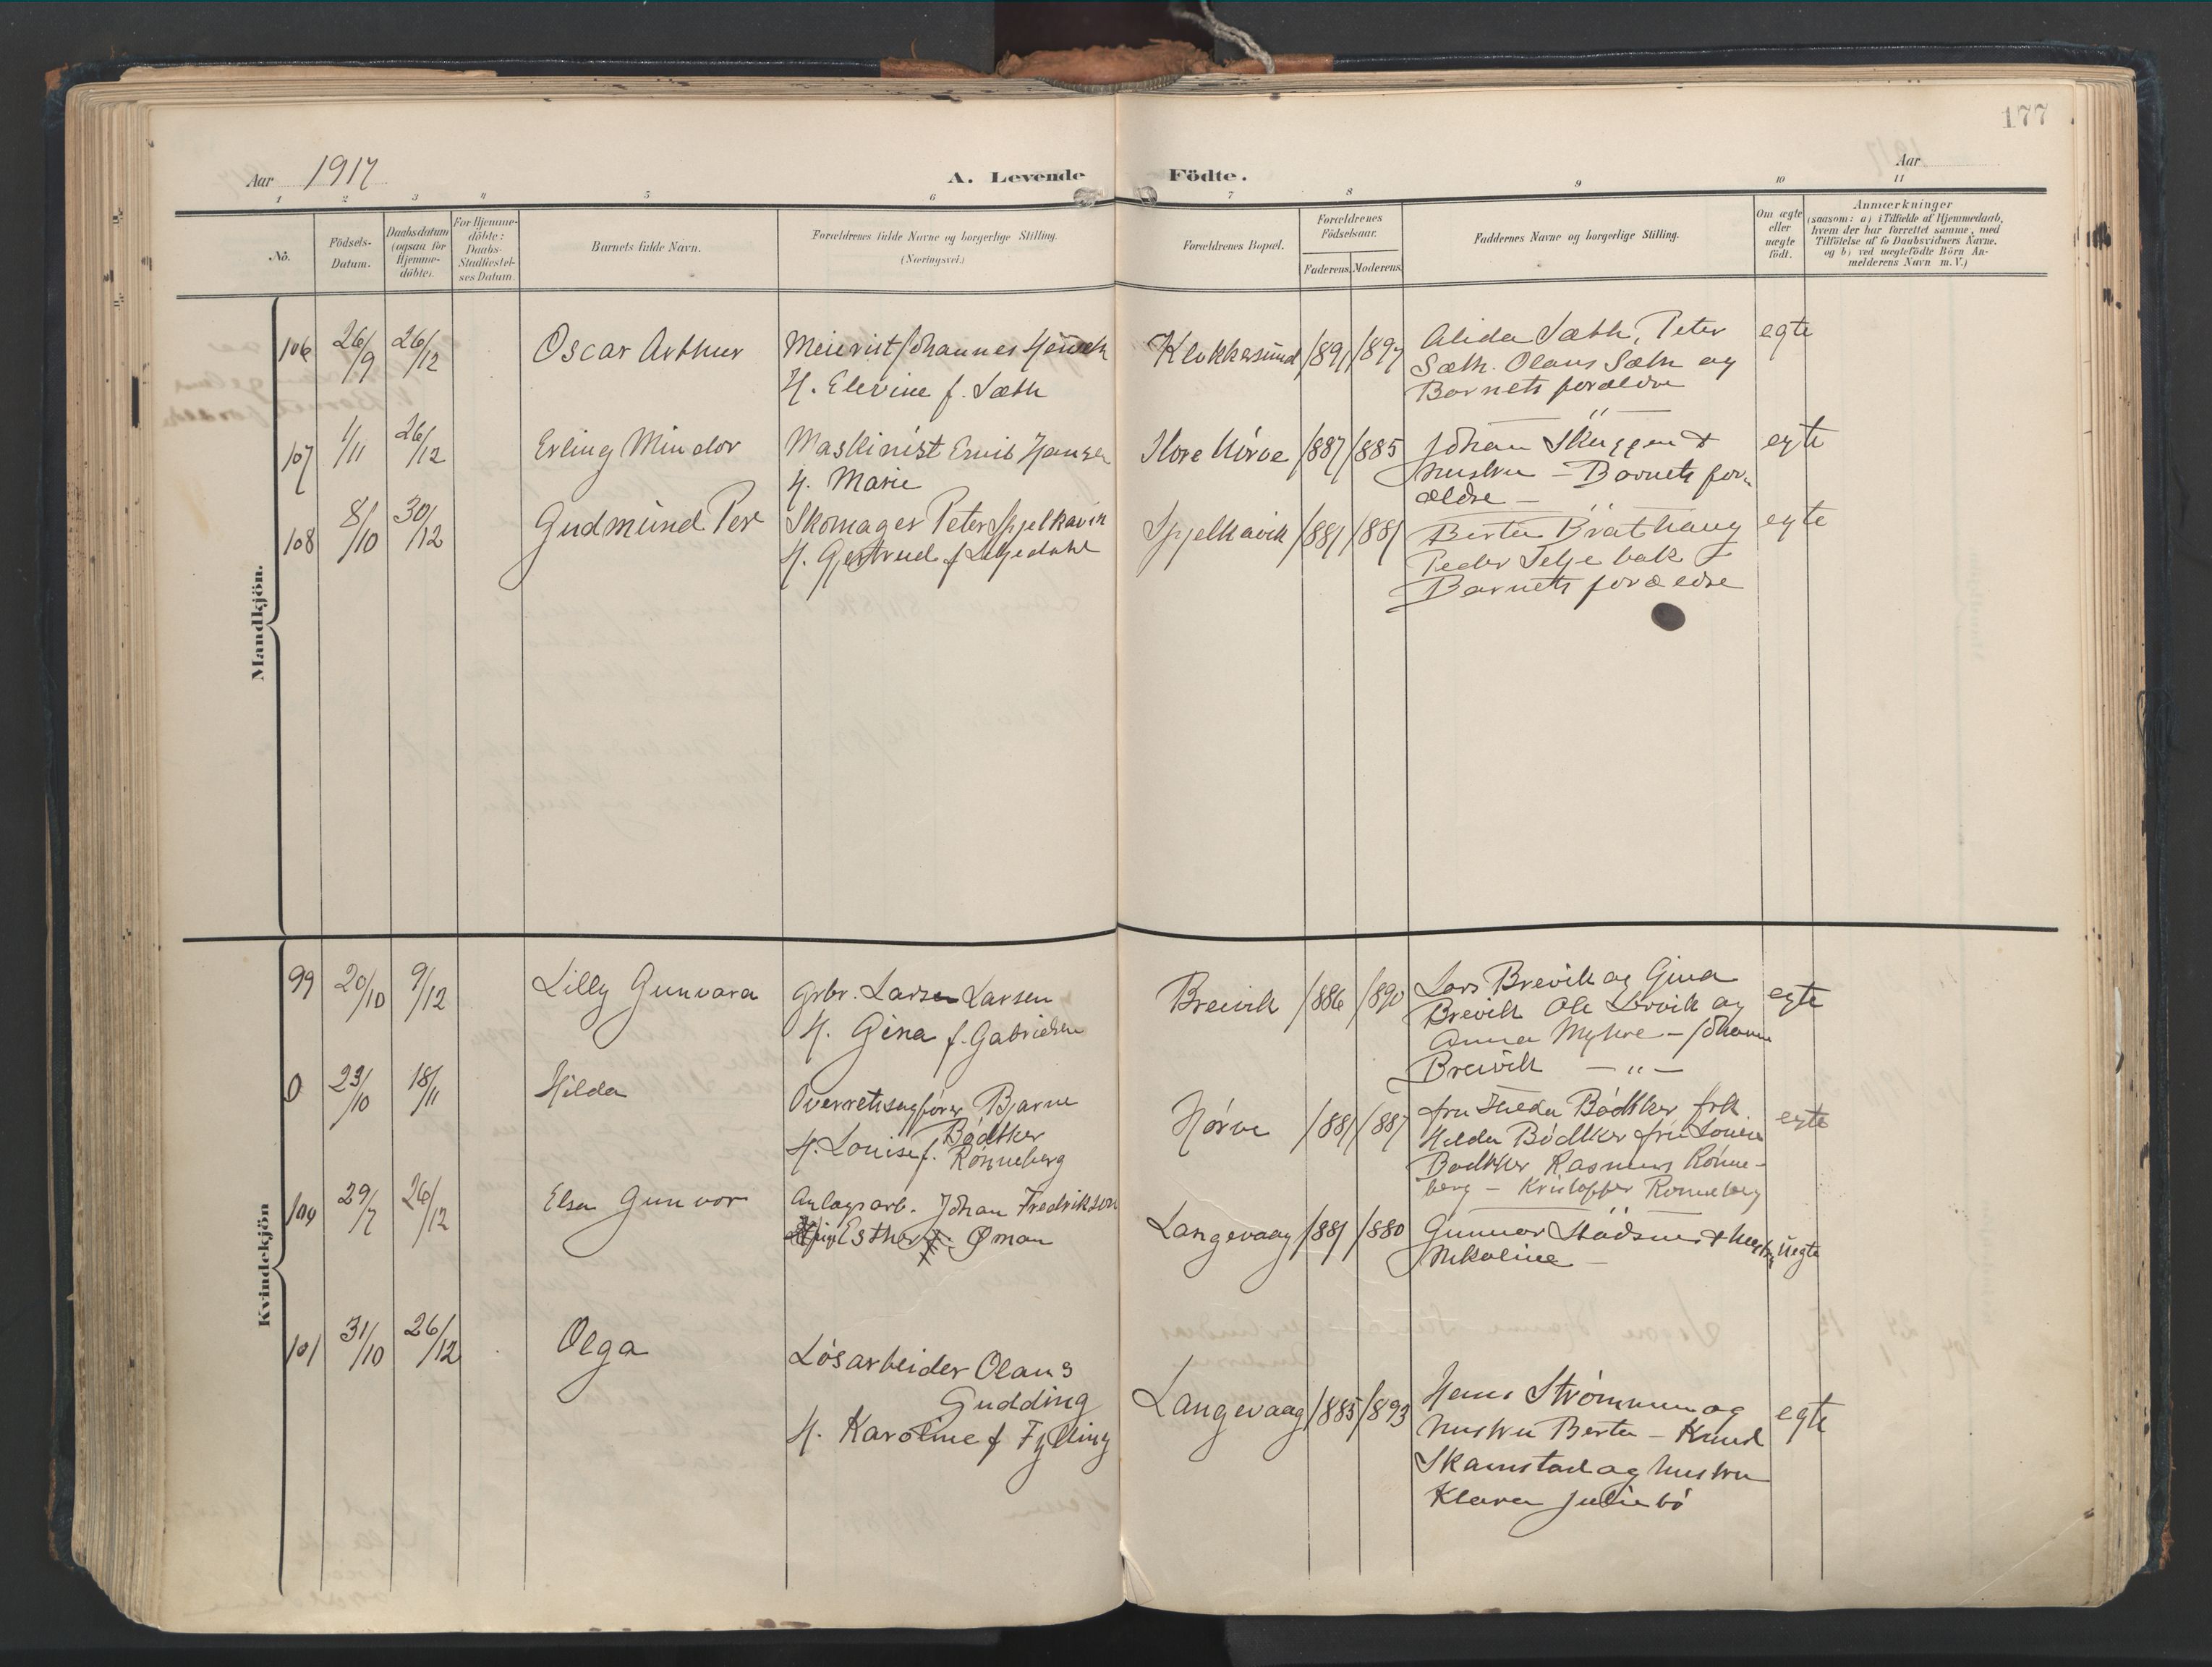 177
Aar 1917
A. Levende Födte.
Aar
1 2 3 4 5 6 7 8 9 10 11
Nö.
Födsels-Datum.
Daabsdatum (ogsaa for Hjemme-döbte).
For Hjemme-döbte: Daabs-Stadfæstel-ses Datum.
Barnets fulde Navn.
Forældrenes fulde Navne og borgerlige Stilling.
(Næringsvei.)
Forældrenes Bopæl.
Forældrenes Födselsaar.
Faderens. Moderens.
Faddernes Navne og borgerlige Stilling.
Om ægte eller uægte födt.
Anmærkninger
(saasom: a) i Tilfælde af Hjemmedaab,
hvem der har forrettet samme, med
Tilföielse af to Daabsvidners Navne.
og b) ved uægtefödte Börn An-
melderens Navn m. V.)
Mandkjön.
106 26/9 26/12 Oscar Arthur Meierist Johannes
H. Elevine f. Sæth
Klokkersund 1891 1897 Alida Sæth, Peter
Sæth. Olaus Sæth og
Barnets forældre
egte
107 1/11 26/12 Erling Mindor Maskinist Emil Hansen
H. Marie
Nørve 1887 1885 Johan Skuggen &
hustru - Barnets for-
ældre -
egte
108 8/10 30/12 Gudmund Per Skomager Peter Spjelkavik
H. Gjertrud f
Spjelkavik 1881 1881 Berte Brathaug
Peder Seljebak &
Barnets forældre
egte
Kvindekjön
99 20/10 9/12 Lilly Gunvara Grbr. Larsen Larsen
H. Gina f. Gabrielsen
Breivik 1886 1890 Lars Breivik og Gina
Breivik Ole Breivik og
Anna Myhre - Johan
Breivik - " -
egte
0 23/10 18/11 Hilda Overretssagfører Bjarne
Bødtker
H. Louise f. Rønneberg
Nørve 1881 1887 fru Bødtker frk.
Hilda Bødtker fru Louise
Bødtker Rasmus Rønne-
berg - Kristoffer Rønneberg
egte
100 29/7 26/12 Elsa Gunvor Anlagsarb. Johan Fredrikson
pige Esther Øman
Langevaag 1881 1880 Gunnar & hustru
Nikoline -
uegte
101 31/10 26/12 Olga Løsarbeider Olaus
Gudding
H. Karoline f Fylling
Langevaag 1885 1893 Hans Strømmen og
hustru Berte - Knud
Skarnstad og hustru
Klara Juliebø
egte